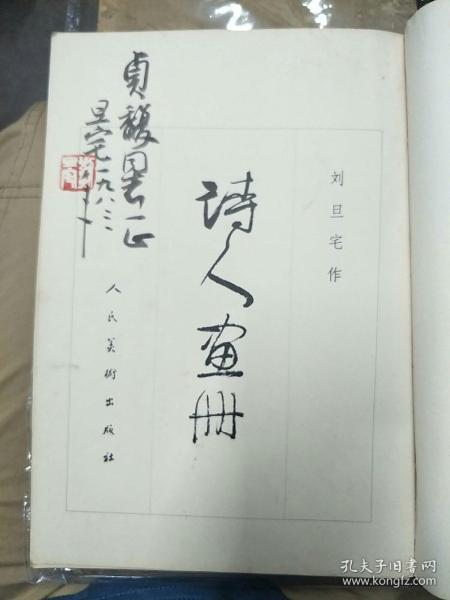 刘旦宅作
诗人画册
人民美術出版社
贞馥同志正
旦宅一九八三
孔夫子旧书网
www.kongfz.com